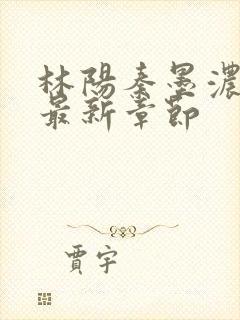 林陽秦墨濃
最新章節
賈宇